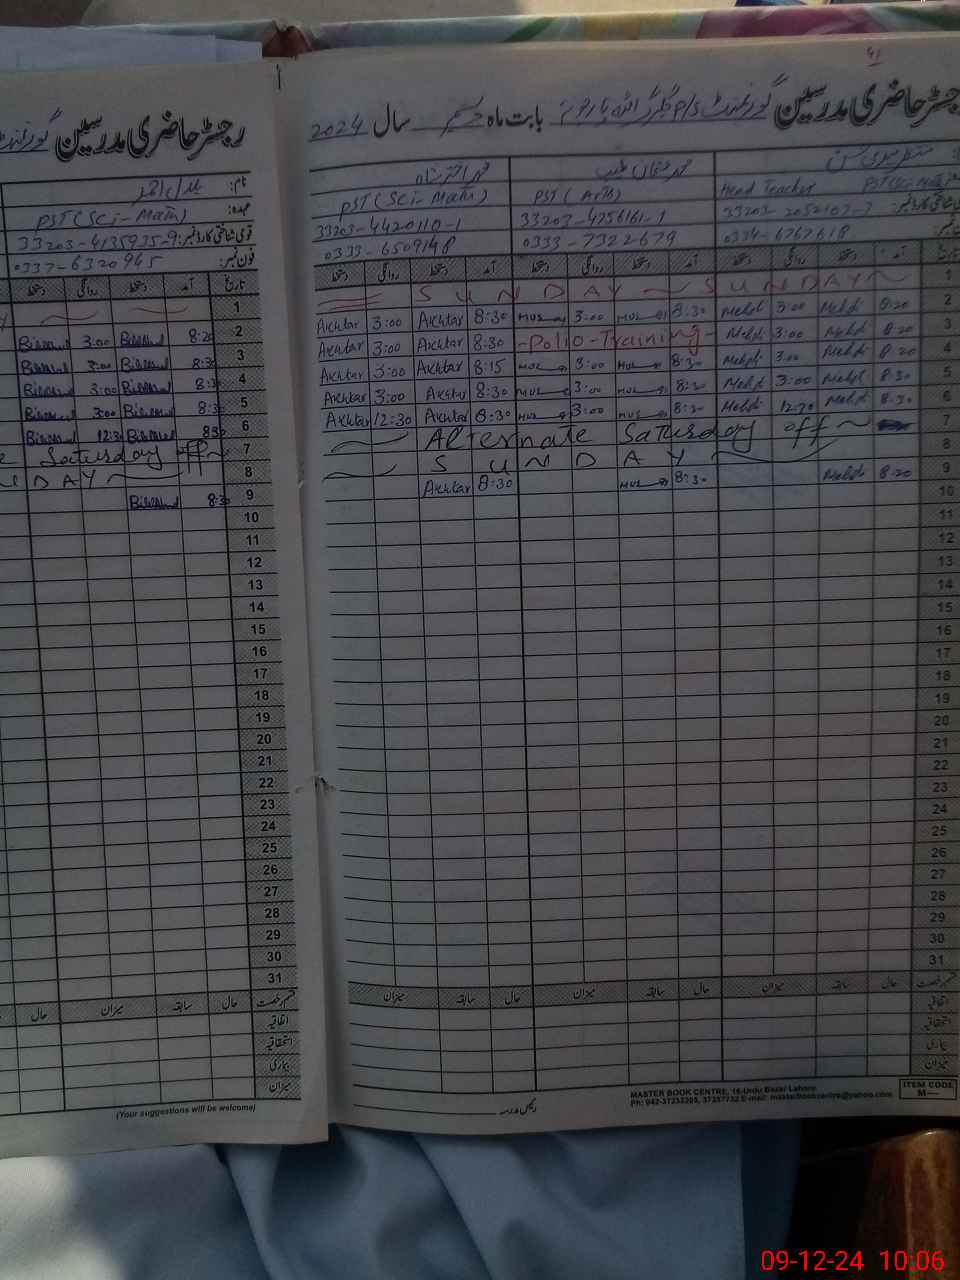 رجسٹر حاضری مدرسین گورنمنٹ
نام:
عہدہ: PST (Sci-Math)
قومی شناختی کارڈ نمبر: 33203-4135935-9
فون نمبر: 0337-6320965
تاریخ آمد دستخط روانگی دستخط
1
2 8:30 3:00
3 8:30 3:00
4 8:30 3:00
5 8:30 3:00
6 8:30 12:30
7 Saturday off
8 DAY
9 8:30
10
11
12
13
14
15
16
17
18
19
20
21
22
23
24
25
26
27
28
29
30
31
قسم رخصت حال سابقہ میزان حال
اتفاقیہ
استحقاقیہ
بیماری
میزان
(Your suggestions will be welcome)
41
رجسٹر حاضری مدرسین گورنمنٹ P/S بابت ماہ دسمبر سال 2024
Head Teacher PST (Sci-Math) PST (Arts) PST (Sci-Math)
33203-2052103-7 33203-4256161-1 33203-4420110-1
0334-6767618 0333-7322679 0333-6509148
تاریخ آمد دستخط روانگی دستخط آمد دستخط روانگی دستخط آمد دستخط روانگی دستخط
1 SUNDAY SUNDAY
2 8:20 Mehdi 3:00 Mehdi 8:30 3:00 8:30 Akhtar 3:00 Akhtar
3 8:20 Mehdi 3:00 Mehdi -Polio-Training- 8:30 Akhtar 3:00 Akhtar
4 8:20 Mehdi 3:00 Mehdi 8:30 3:00 8:15 Akhtar 3:00 Akhtar
5 8:30 Mehdi 3:00 Mehdi 8:30 3:00 8:30 Akhtar 3:00 Akhtar
6 8:30 Mehdi 12:30 Mehdi 8:30 3:00 8:30 Akhtar 12:30 Akhtar
7 Alternate Saturday off
8 SUNDAY
9 8:20 Mehdi 8:30 8:30 Akhtar
10
11
12
13
14
15
16
17
18
19
20
21
22
23
24
25
26
27
28
29
30
31
قسم رخصت حال سابقہ میزان حال سابقہ میزان حال سابقہ میزان
اتفاقیہ
استحقاقیہ
بیماری
میزان
رئیس مدرسہ
MASTER BOOK CENTRE, 16-Urdu Bazar Lahore.
E-mail: masterbookcentre@yahoo.com
ITEM CODE
M—
09-12-24 10:06